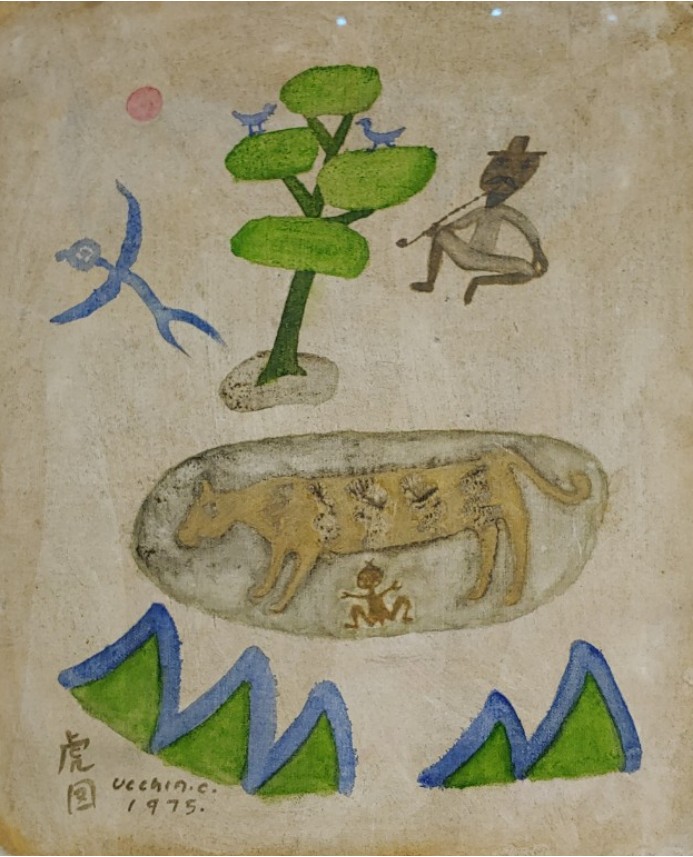 虎図
ucchin.c.
1975.